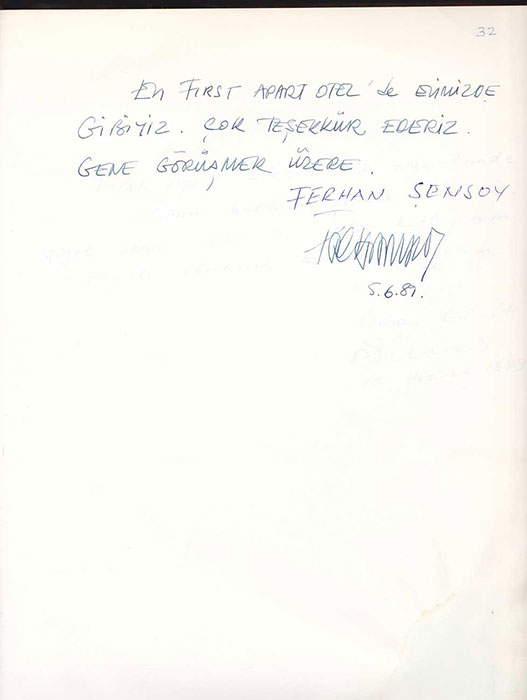 32
EN FIRST APART OTEL'de EVİMİZDE
GİBİYİZ. ÇOK TEŞEKKÜR EDERİZ.
GENE GÖRÜŞMEK ÜZERE.
FERHAN ŞENSOY
5.6.89.